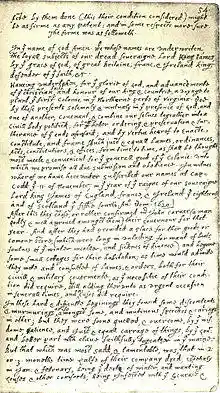 54
shuch an acte by them done (this their condition considered) might
be as firme as any patent; and in some respects more sure.
The forme was as followeth.
In ye name of god Amen. We whose names are underwriten,
the loyall subjects of our dread soveraigne Lord King James
by ye grace of god, of great Britaine, franc, & Ireland king,
defender of ye faith, &c.
Haveing undertaken, for ye glorie of god, and advancemente
of ye christian faith and honour of our king & countrie, a voyage to
plant ye first colonie in ye Northerne parts of Virginia. doe
by these presents solemnly & mutualy in ye presence of god, and
one of another, covenant, & combine our selves togeather into a
civill body politick; for our better ordering, & preservation & fur=
therance of ye ends aforesaid; and by vertue hearof to enacte,
constitute, and frame shuch just & equall lawes, ordinances,
acts, constitutions, & offices, from time to time, as shall be thought
most meete & convenient for ye generall good of ye colonie: unto
which we promise all due submission and obedience. In witnes
wherof we have hereunder subscribed our names at cap=
codd ye .11. of November, in ye year of ye raigne of our soveraigne
Lord king James of England, france, & Ireland ye eighteenth
and of Scotland ye fiftie fourth. Ano: Dom. 1620.
After this they chose, or rather confirmed mr John carver (a man
godly & well approved amongst them) their Governour for that
year. And after they had provided a place for their goods, or
comone store, (which were long in unlading for want of boats,
foulnes of ye winter weather, and sicknes of diverse) and begune
some small cottages for their habitation; as time would admitte
they mette and consulted of lawes, & orders, both for their
civill, & military govermente, as ye necessitie of their condi=
tion did require, still adding therunto as urgent occasion
in severall times, and as cases did require.
In these hard & difficulte beginings they found some discontents
& murmurings arise amongst some, and mutinous speeches & cariags
in other; but they were soone quelled, & overcome, by ye wis=
dome, patience, and just & equall cariage of things, by ye Govr
and better part wch clave faithfully togeather in ye maine.
but that which was most sadd, & lamentable, was, that in 2.
or 3. moneths time halfe of their company dyed, espetialy
in Jan: & february, being ye depth of winter, and wanting
houses & other comforts; being Infected with ye scurvie &